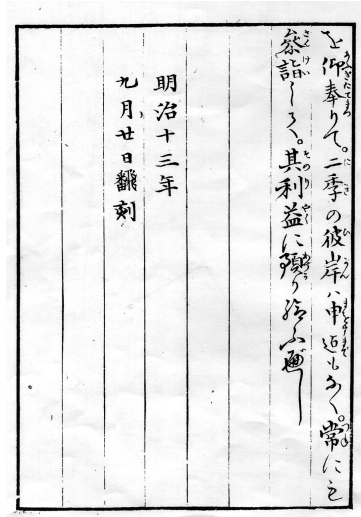 を仰奉りて。二季の彼岸ハ申迄もなく。常にも
参詣して。其利益に預り給ふべし
明治十三年
九月廿日飜刻